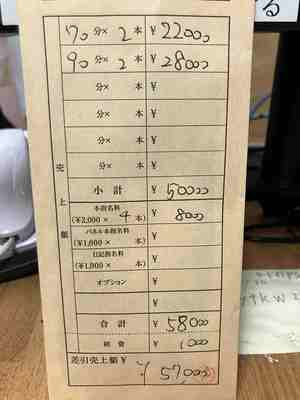 る
70分× 2本 ¥ 22000
90分× 2本 ¥ 28000
分× 本 ¥
分× 本 ¥
分× 本 ¥
分× 本 ¥
売上額
小計 ¥ 50000
本指名料
(¥2,000× 4本) ¥ 8000
パネル本指名料
(¥1,000× 本) ¥
日記指名料
(¥1,000× 本) ¥
オプション ¥
¥
合計 ¥ 58000
経費 ¥ 1000
差引売上額¥ ¥ 57,000